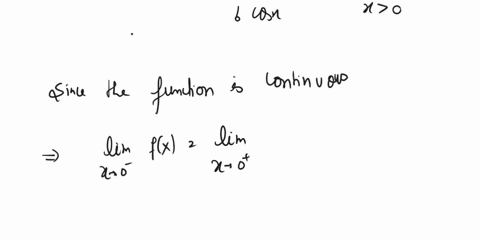 6 cosx x>0
Since the function is continuous
⇒ lim x→0⁻ f(x) = lim x→0⁺